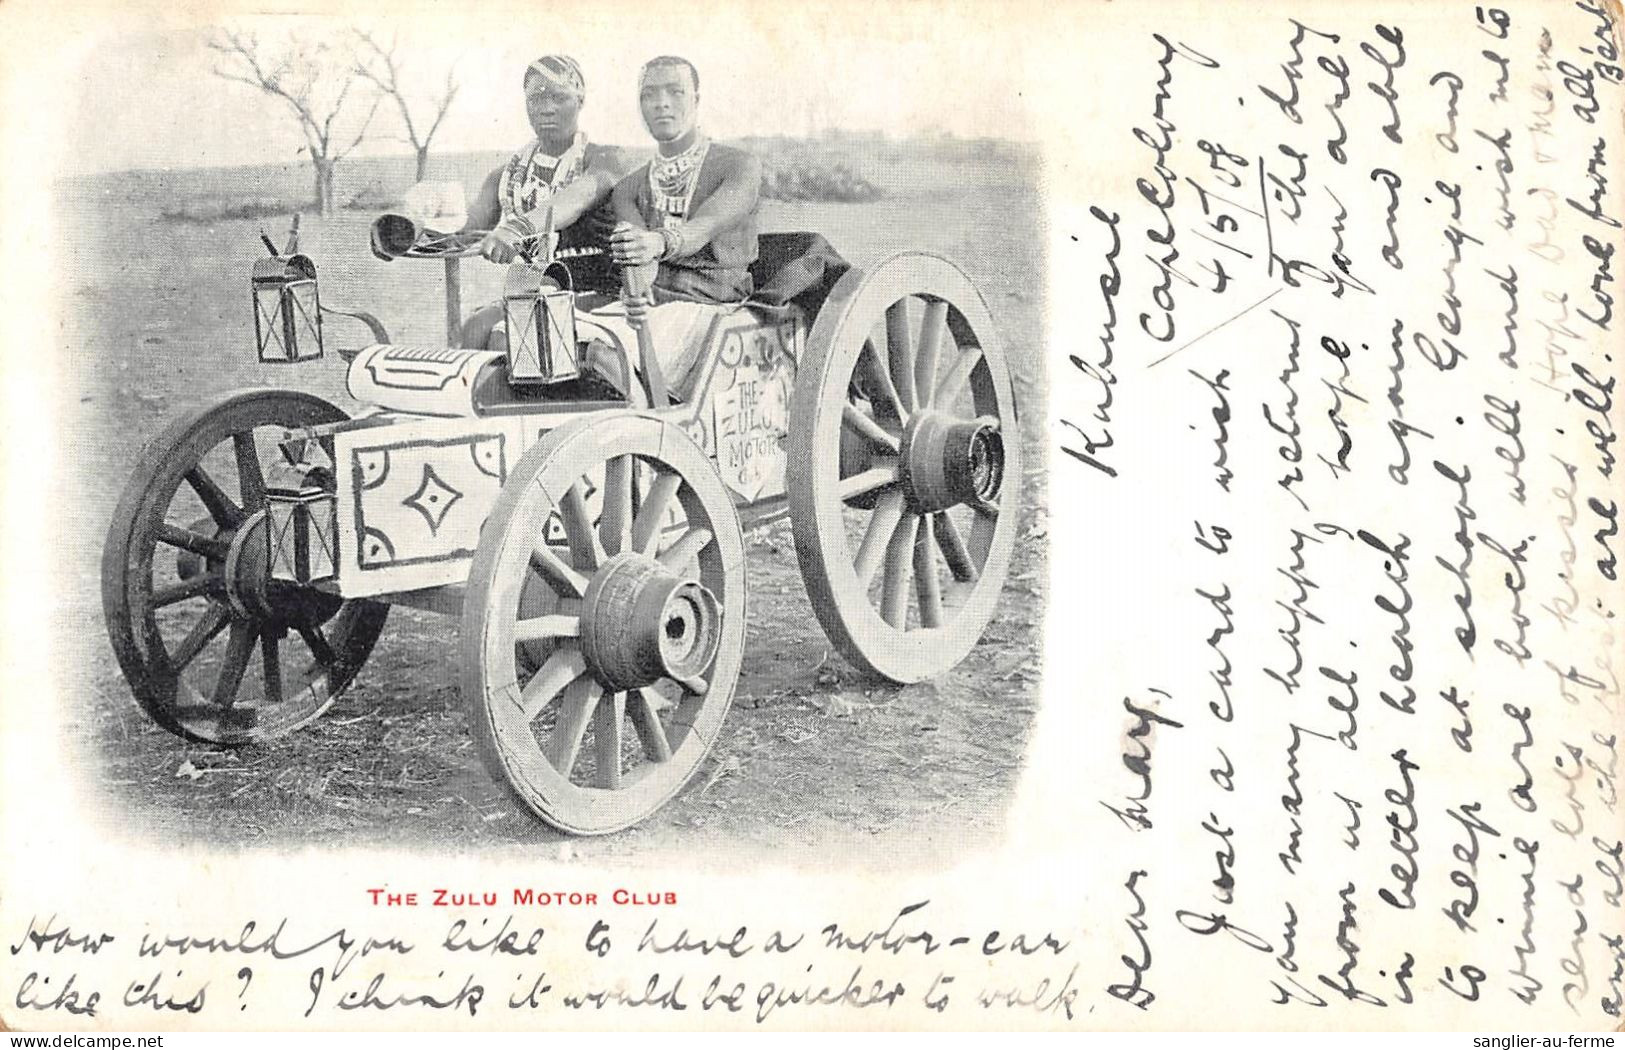 THE
ZULU
MOTOR
THE ZULU MOTOR CLUB
How would you like to have a motor-car
like this? I think it would be quicker to walk.
Kubusie
Cape Colony
4/5/05.
Dear Mary,
Just a card to wish
you many happy returns of the day
from us all. I hope you are
in better health again and able
to keep at school. Georgie and
Winnie are both well and wish me to
send lots of kisses. Hope Dad & Mam
and all the rest are well. Love from all
Bert
sanglier-au-ferme